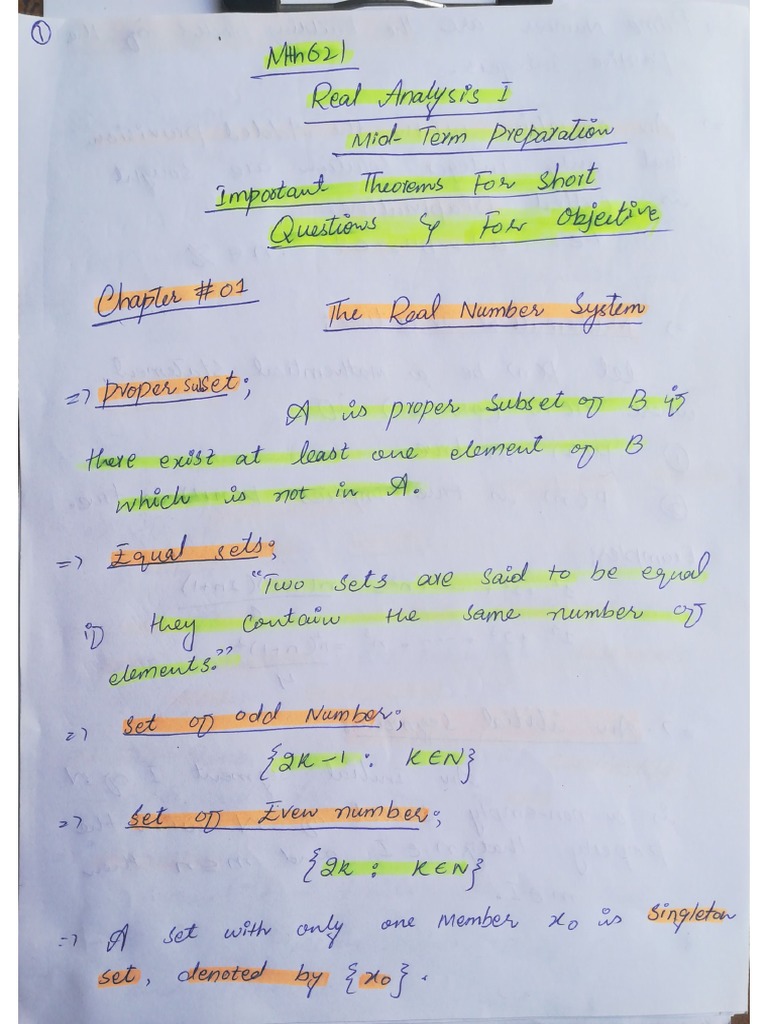 1
Mth621
Real Analysis I
Mid-Term Preparation
Important Theorems For Short
Questions & For Objective
Chapter #01
The Real Number System
=> proper subset;
A is proper subset of B if
there exist at least one element of B
which is not in A.
=> Equal sets;
"Two sets are said to be equal
if they contain the same number of
elements."
=> set of odd Number;
{2k-1 : K∈N}
=> set of Even number;
{2k : K∈N}
=> A set with only one Member x₀ is singleton
set, denoted by {x₀}.